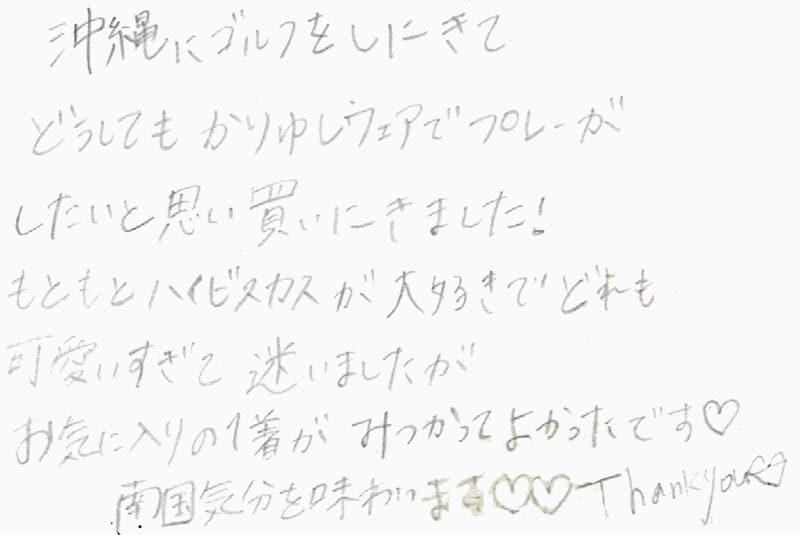 沖縄にゴルフをしにきて
どうしてもかりゆしウェアでプレーが
したいと思い買いにきました!
もともとハイビスカスが大好きでどれも
可愛いすぎて迷いましたが
お気に入りの1着がみつかってよかったです♡
南国気分を味わいます♡♡ Thankyou